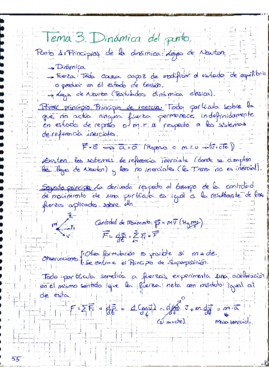 Tema 3. Dinámica del punto.
Parte 1: Principios de la dinámica: Leyes de Newton.
→ Dinámica
→ Fuerza: Toda causa capaz de modificar el estado de equilibrio
o producir en él estado de tensión.
→ Leyes de Newton (Postulados dinámica clásica).
Primer principio. Principio de inercia: Toda partícula sobre la
que no actúa ninguna fuerza permanece indefinidamente
en estado de reposo o m.r.u respecto a los sistemas
de referencia inerciales.
Existen los sistemas de referencia inercial (donde se cumplen
las leyes de Newton) y los no inerciales (la Tierra no es inercial).
Segundo principio: La derivada respecto al tiempo de la cantidad
de movimiento de una partícula es igual a la resultante de las
fuerzas aplicadas sobre ella
Cantidad de Movimiento:
Observaciones: Otra formulación es posible si m = cte.
Se cumple el Principio de Superposición.
Toda partícula sometida a fuerzas experimenta una aceleración
en el mismo sentido que la fuerza neta con módulo igual al
de esta.
(si m = cte) Masa inercial.
55